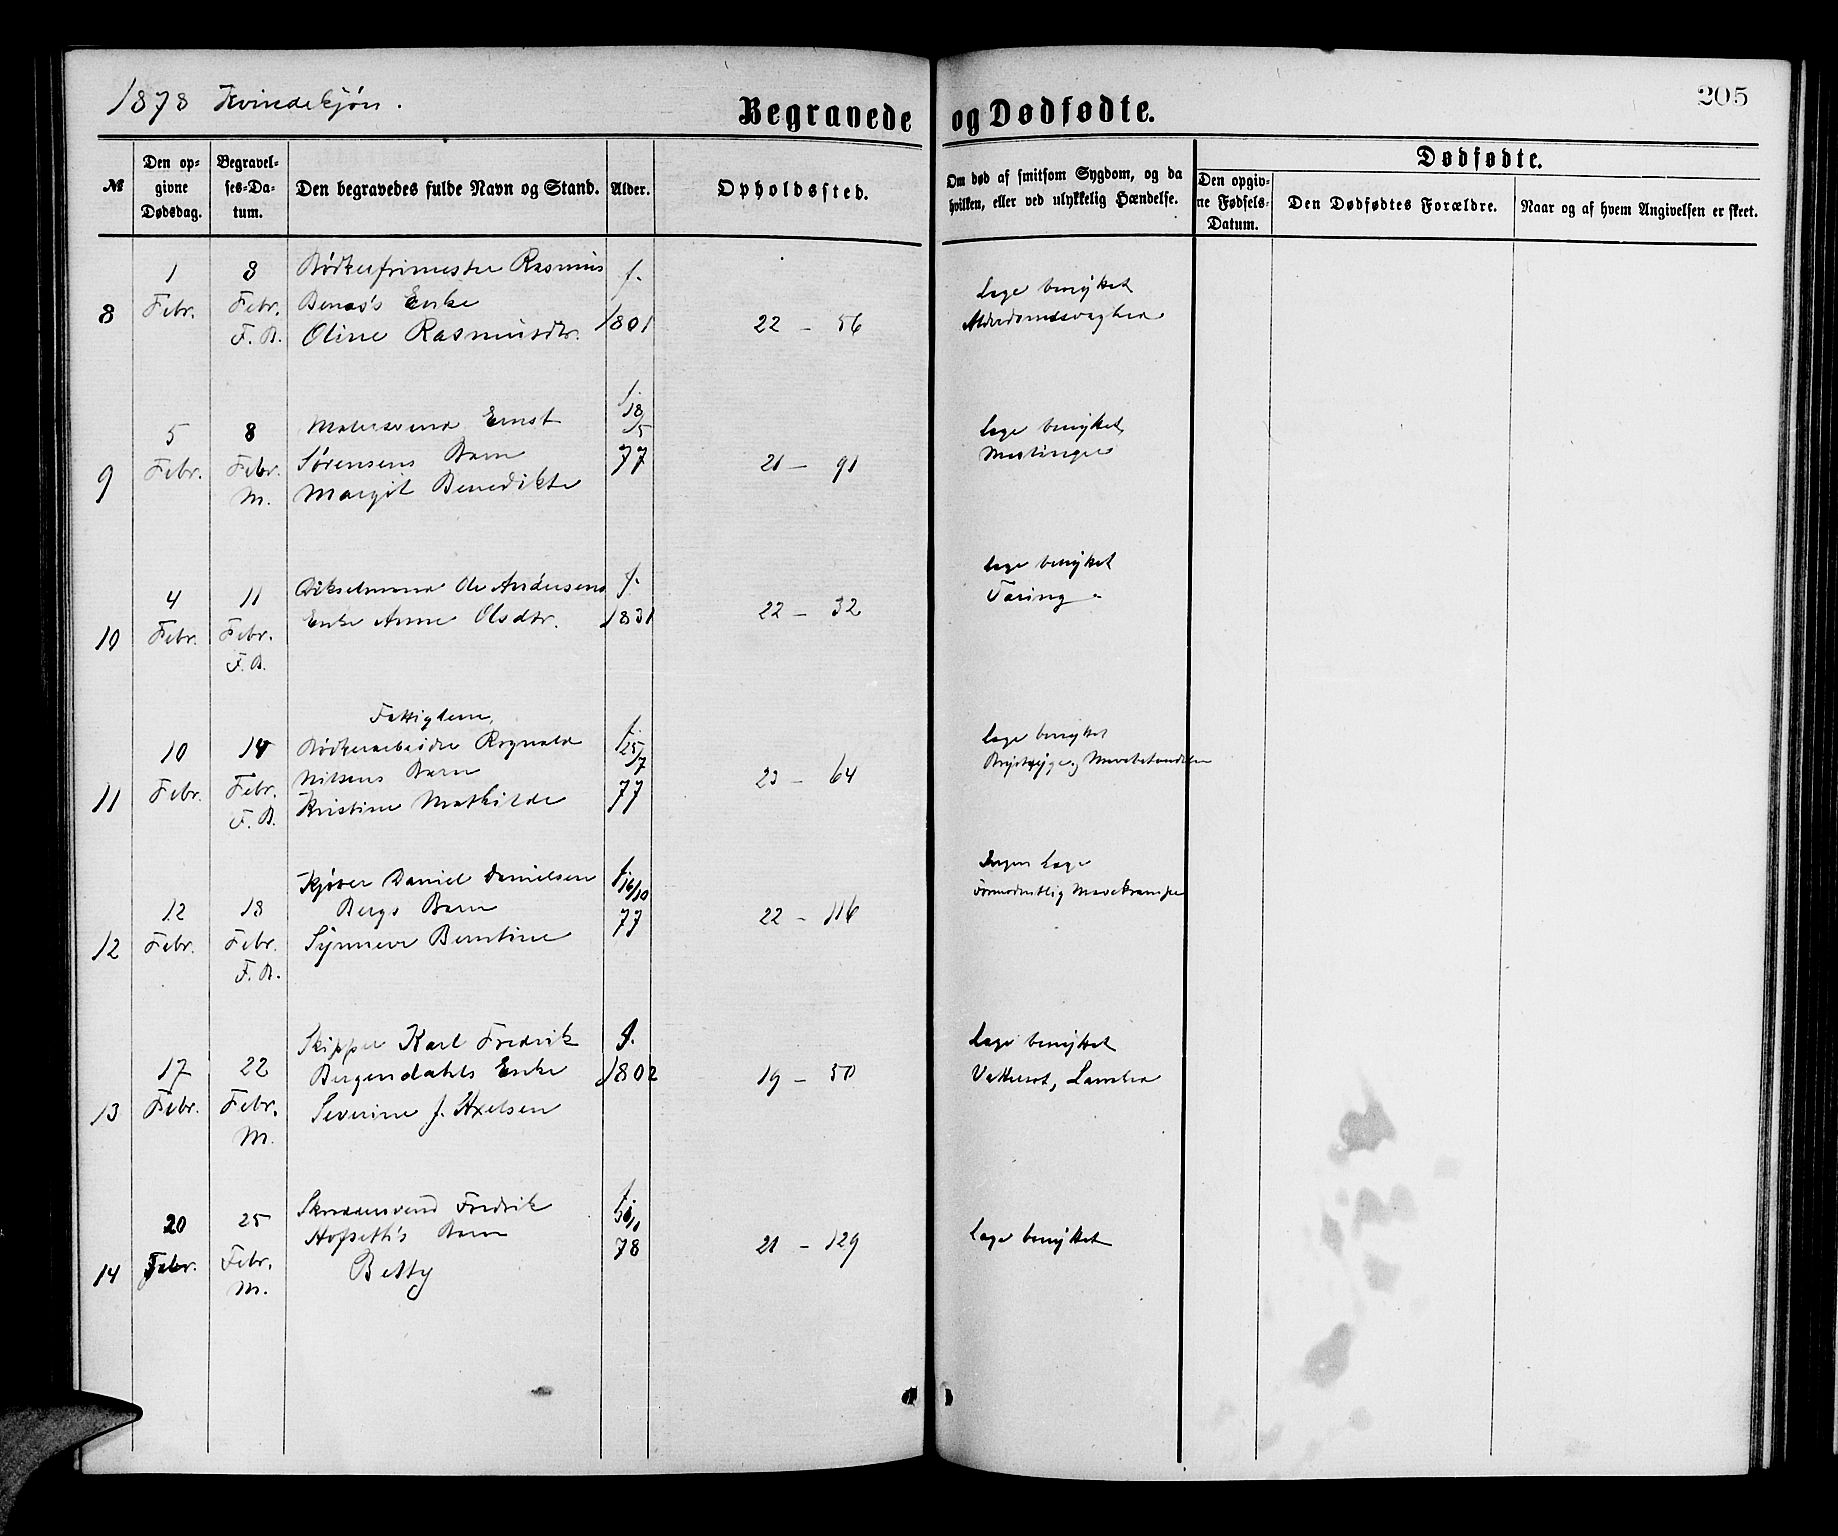 1878 Kvindekjøn.
205
Begravede og Dødfødte.
№
Den op-
givne
Dødsdag.
Begravel-
ses-Da-
tum.
Den begravedes fulde Navn og Stand.
Alder.
Opholdssted.
Om død af smitsom Sygdom, og da
hvilken, eller ved ulykkelig Hændelse.
Dødfødte.
Den opgiv-
ne Fødsels-
Datum.
Den Dødfødtes Forældre.
Naar og af hvem Angivelsen er skeet.
8
1
Febr.
8
Febr.
F. B.
Bødkerfrimester Rasmus
Enke
Oline Rasmusdtr.
f.
1801
22 - 56
Læge benyttet
Alderdomssvaghed
9
5
Febr.
8
Febr.
M.
Malersvend Ernst
Sørensens Barn
Margit Benedikte
f.
18/5
77
21 - 91
Læge benyttet
Meslinger
10
4
Febr.
11
Febr.
F. B.
Ole Andersens
Enke Anne Olsdtr.
f.
1831
22 - 32
Læge benyttet
Tæring
11
10
Febr.
14
Febr.
F. B.
Fattiglem,
Bødkerarbeider Rognald
Nilsens Barn
Kristine Mathilde
f.
25/7
77
23 - 64
Læge benyttet
12
12
Febr.
18
Febr.
F. B.
Kjører Daniel Danielsen
Bergs Barn
Synneve Berntine
f.
16/10
77
22 - 116
Ingen Læge
formodentlig Mavekrampe
13
17
Febr.
22
Febr.
M.
Skipper Karl Fredrik
Bergendahls Enke
Severine f. Axelsen
f.
1802
19 - 50
Læge benyttet
Vattersot,
14
20
Febr.
25
Febr.
M.
Skræddersvend Fredrik
Hofseth's Barn
Betty
f.
78
21 - 129
Læge benyttet